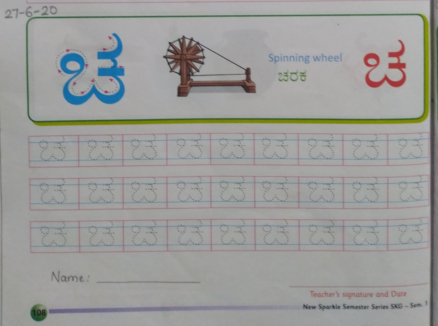 27-6-20
ಚ
Spinning wheel
ಚರಕ
ಚ
ಚ ಚ ಚ ಚ ಚ ಚ ಚ ಚ ಚ
ಚ ಚ ಚ ಚ ಚ ಚ ಚ ಚ ಚ
ಚ ಚ ಚ ಚ ಚ ಚ ಚ ಚ ಚ
Name:
Teacher's signature and Date
108
New Sparkle Semester Series SKG - Sem. 1